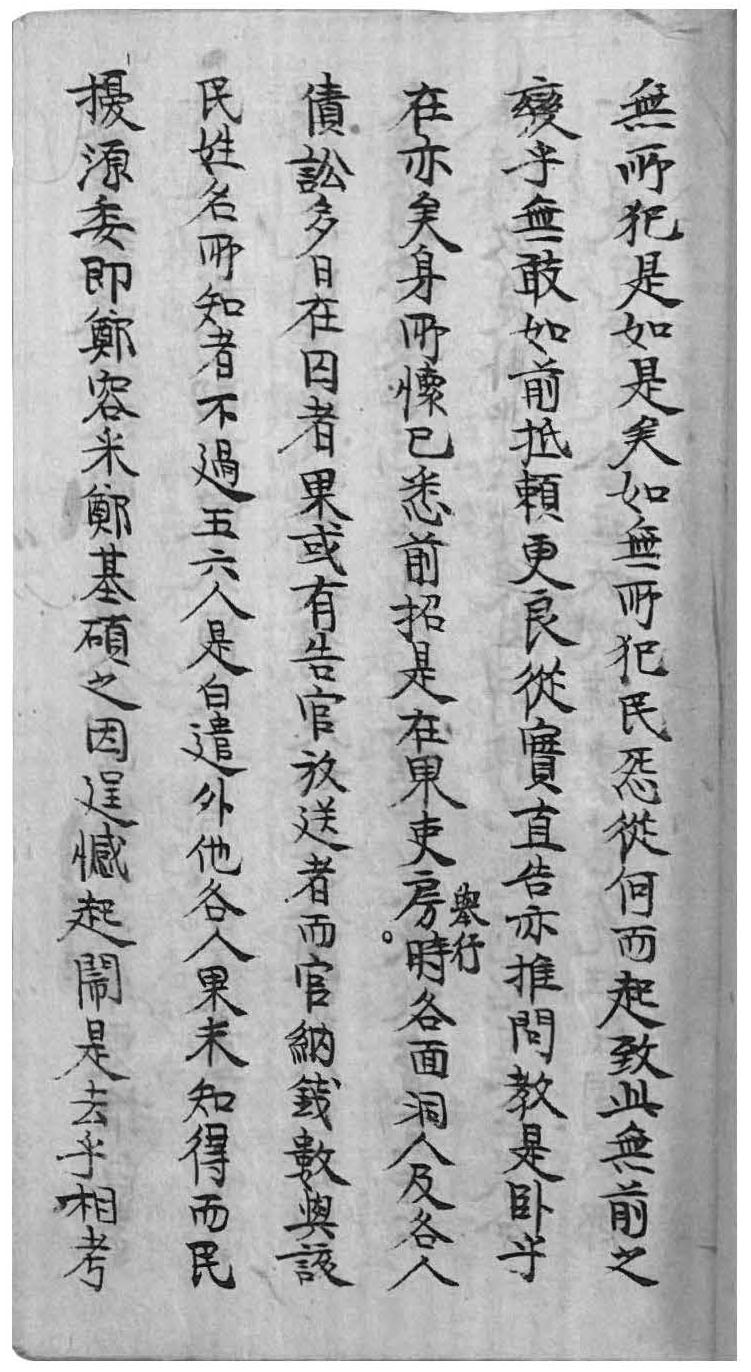 無所犯是如是矣如無所犯民怨從何而起致此無前之
變乎無敢如前抵賴更良從實直告亦推問教是卧乎
在亦矣身所懷已悉前招是在果吏房擧行時各面洞人及各人
債訟多日在囚者果或有告官放送者而官納錢數與該
民姓名所知者不過五六人是白遣外他各人果未知得而民
擾源委卽鄭容采鄭基碩之因逞憾起鬧是去乎相考